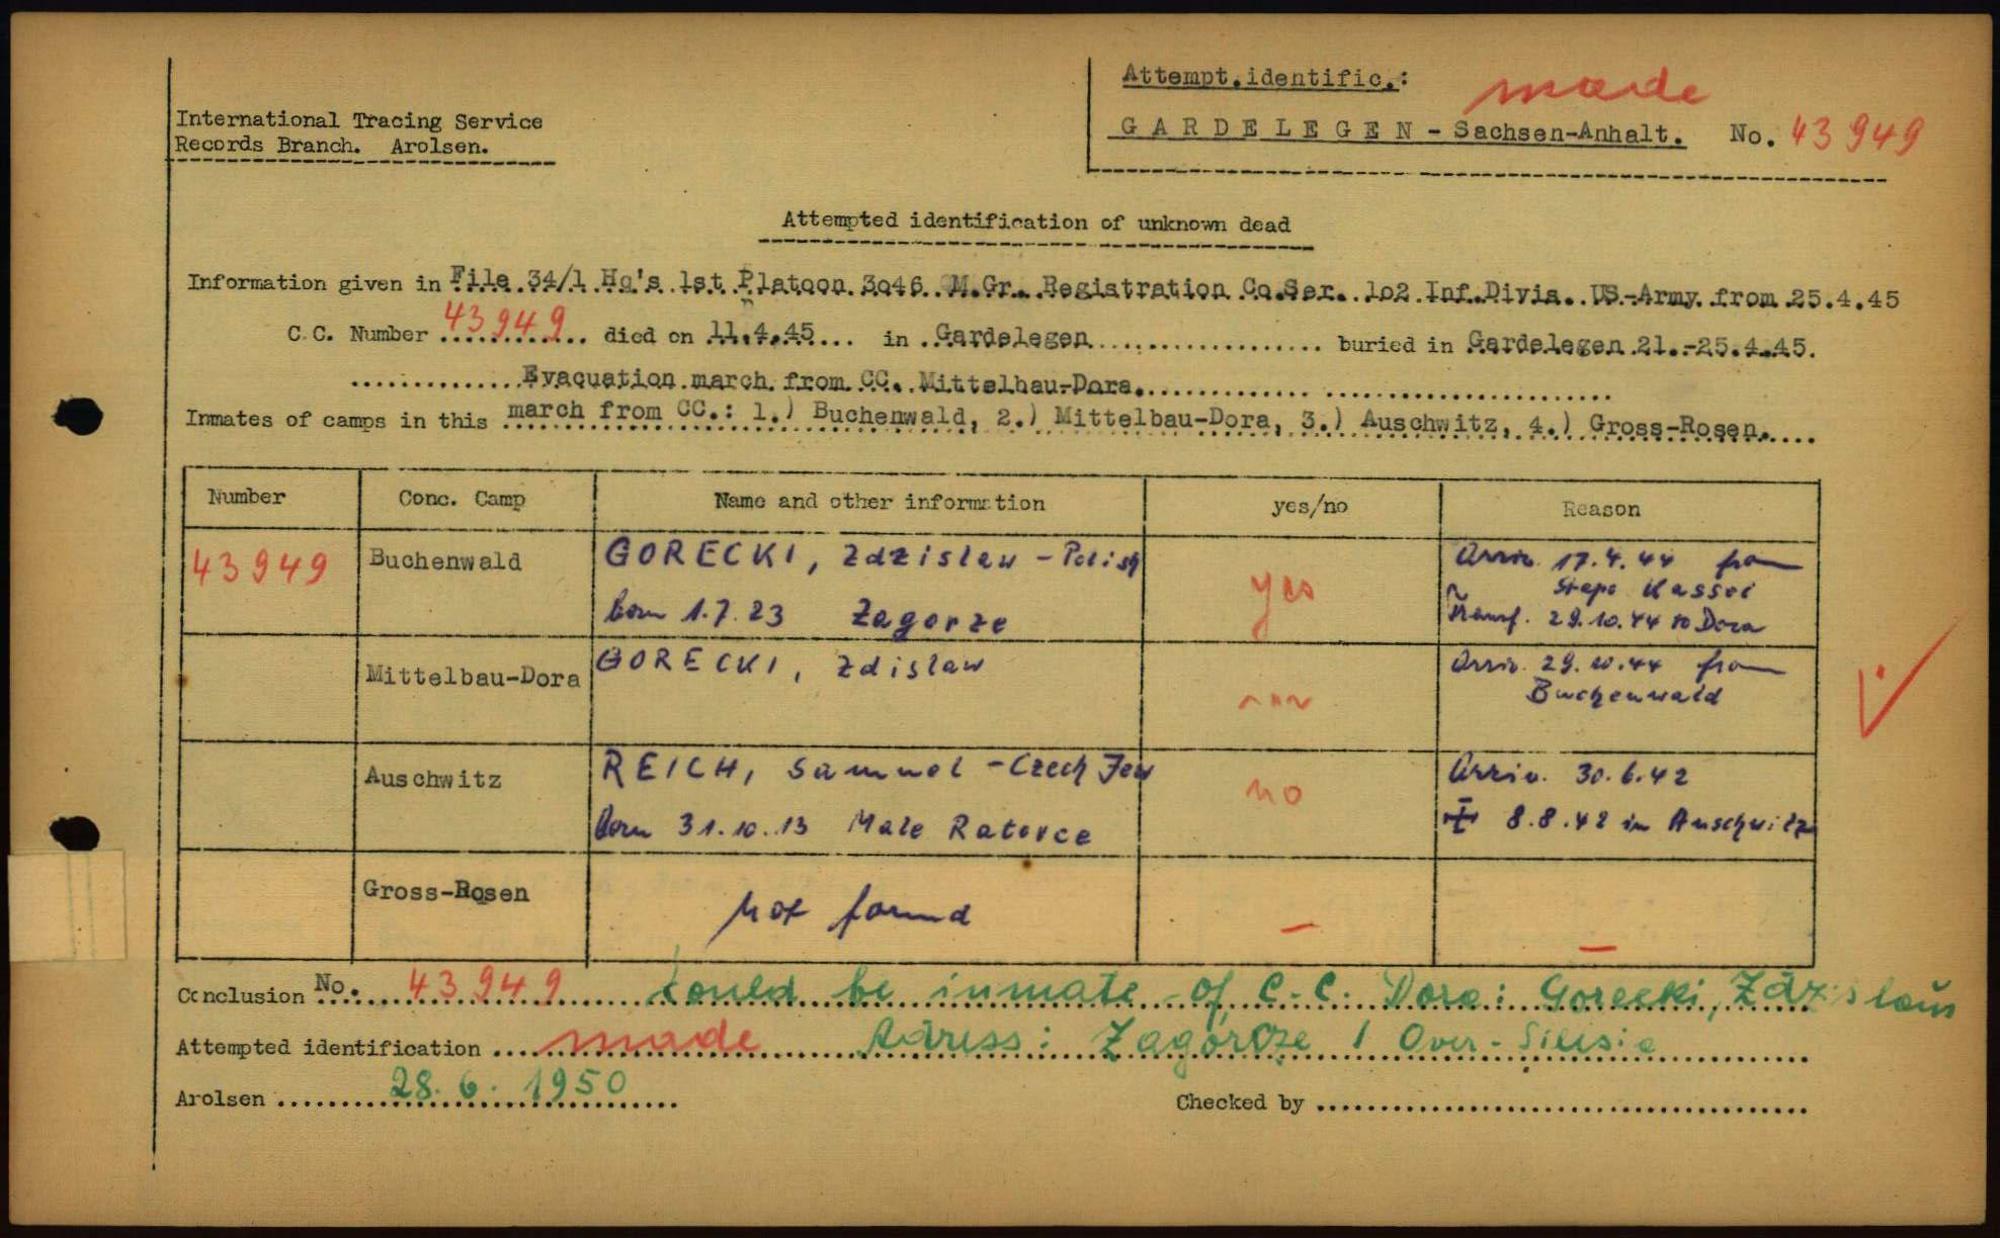 Attempt.identific.: made
International Tracing Service
Records Branch. Arolsen.
GARDELEGEN - Sachsen-Anhalt. No. 43949
Attempted identification of unknown dead
Information given in File 34/1 Hq's 1st Platoon 3046 M.Gr. Registration Co.Ser. 102 Inf.Divis. US-Army from 25.4.45
C.C. Number 43949 died on 11.4.45 in Gardelegen buried in Gardelegen 21.-25.4.45.
Evacuation march from CC. Mittelbau-Dora.
Inmates of camps in this march from CC.: 1.) Buchenwald, 2.) Mittelbau-Dora, 3.) Auschwitz, 4.) Gross-Rosen.
Number Conc. Camp Name and other information yes/no Reason
43949 Buchenwald GORECKI, Zdzislaw - Polish yes Arriv. 17.4.44 from
Stapo Kassel
born 1.7.23 Zagorze Transf. 29.10.44 to Dora
Mittelbau-Dora GORECKI, Zdislaw Arriv. 29.10.44 from
Buchenwald
Auschwitz REICH, Samuel - Czech Jew no Arriv. 30.6.42
born 31.10.13 Male Ratovce 8.8.42 in Auschwitz
Gross-Rosen not found – –
Conclusion No. 43949 could be inmate of C.C. Dora: Gorecki, Zdzislaus
Attempted identification made Adress: Zagórze / Over-Silisia
Arolsen 28.6.1950 Checked by